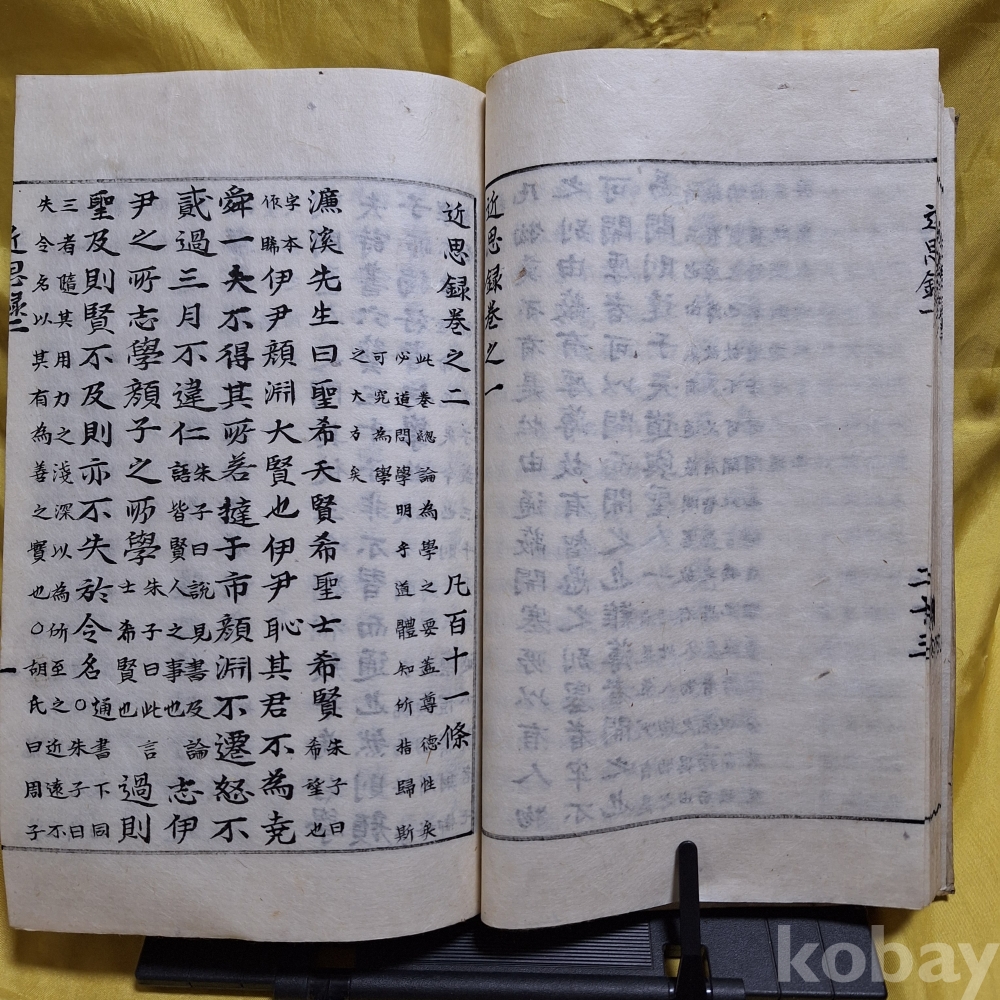 近思録一
二十三
近思録卷之一
近思録卷之二 凡百十一條
此卷總論為學之要蓋尊德性矣
必道問學明乎道體知所指歸斯
可究為學
之大方矣
濂溪先生曰聖希天賢希聖士希賢 朱子曰 希望也
字本 作睎 伊尹顏淵大賢也伊尹恥其君不為堯
舜一夫不得其所若撻于市顏淵不遷怒不
貳過三月不違仁 朱子曰說見書及論 語皆賢人之事也 志伊
尹之所志學顏子之所學 朱子曰此言 士希賢也 過則
聖及則賢不及則亦不失於令名 通書下同 ○朱子曰
三者隨其用力之淺深以為所至之近遠不
失令名以其有為善之實也○胡氏曰周子
近思録二
一
kobay